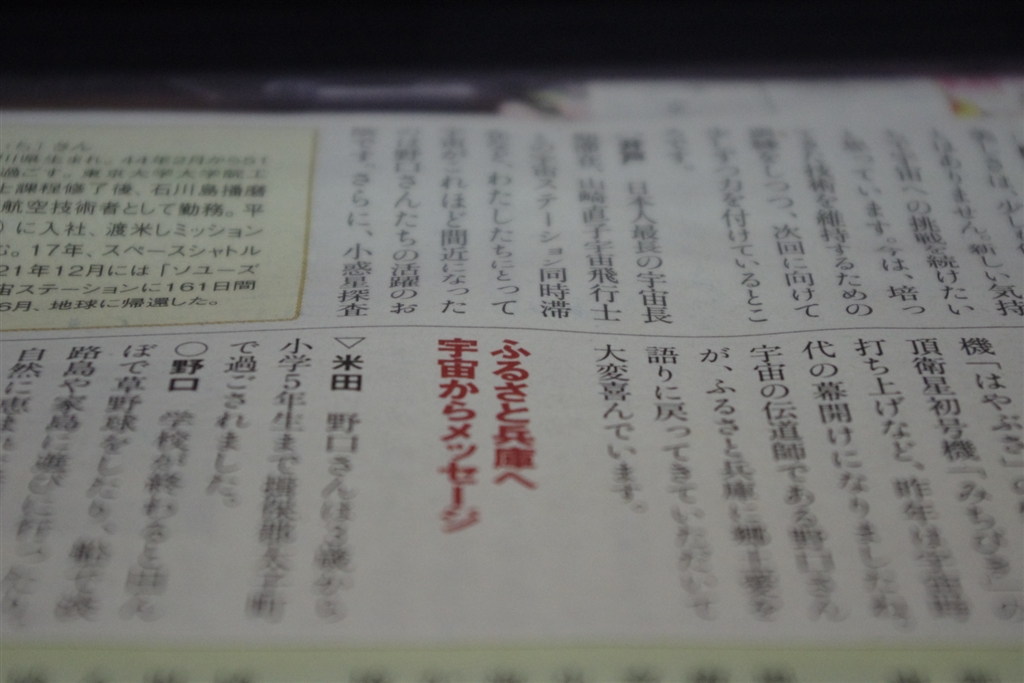 しさは、少し
はありません。新しい気持
ちで宇宙への挑戦を続けたい
と思っています。今は、培っ
てきた技術を維持するための
訓練をしつつ、次回に向けて
力を付けているとこ
ろです。
井戸　日本人最長の宇宙長
期滞在、山崎直子宇宙飛行士
との宇宙ステーション同時滞
在など、わたしたちにとって
宇宙がこれほど間近になった
のは野口さんたちの活躍のお
陰です。さらに、小惑星探査
機「はやぶさ」の
頂衛星初号機「みちびき」の
打ち上げなど、昨年は宇宙時
代の幕開けになりましたね。
宇宙の伝道師である野口さん
が、ふるさと兵庫に郷土愛を
語りに戻ってきていただいて
大変喜んでいます。
ふるさと兵庫へ
宇宙からメッセージ
▽米田　野口さんは3歳から
小学5年生まで揖保郡太子町
で過ごされました。
○野口　学校が終わると田ん
ぼで草野球をしたり、船で淡
路島や家島に遊びに行ったり、
自然に恵まれ
いち」さん
川県生まれ。44年2月から51
過ごす。東京大学大学院工
士課程修了後、石川島播磨
航空技術者として勤務。平
に入社、渡米しミッション
む。17年、スペースシャトル
21年12月には「ソユーズ
宙ステーションに161日間
6月、地球に帰還した。